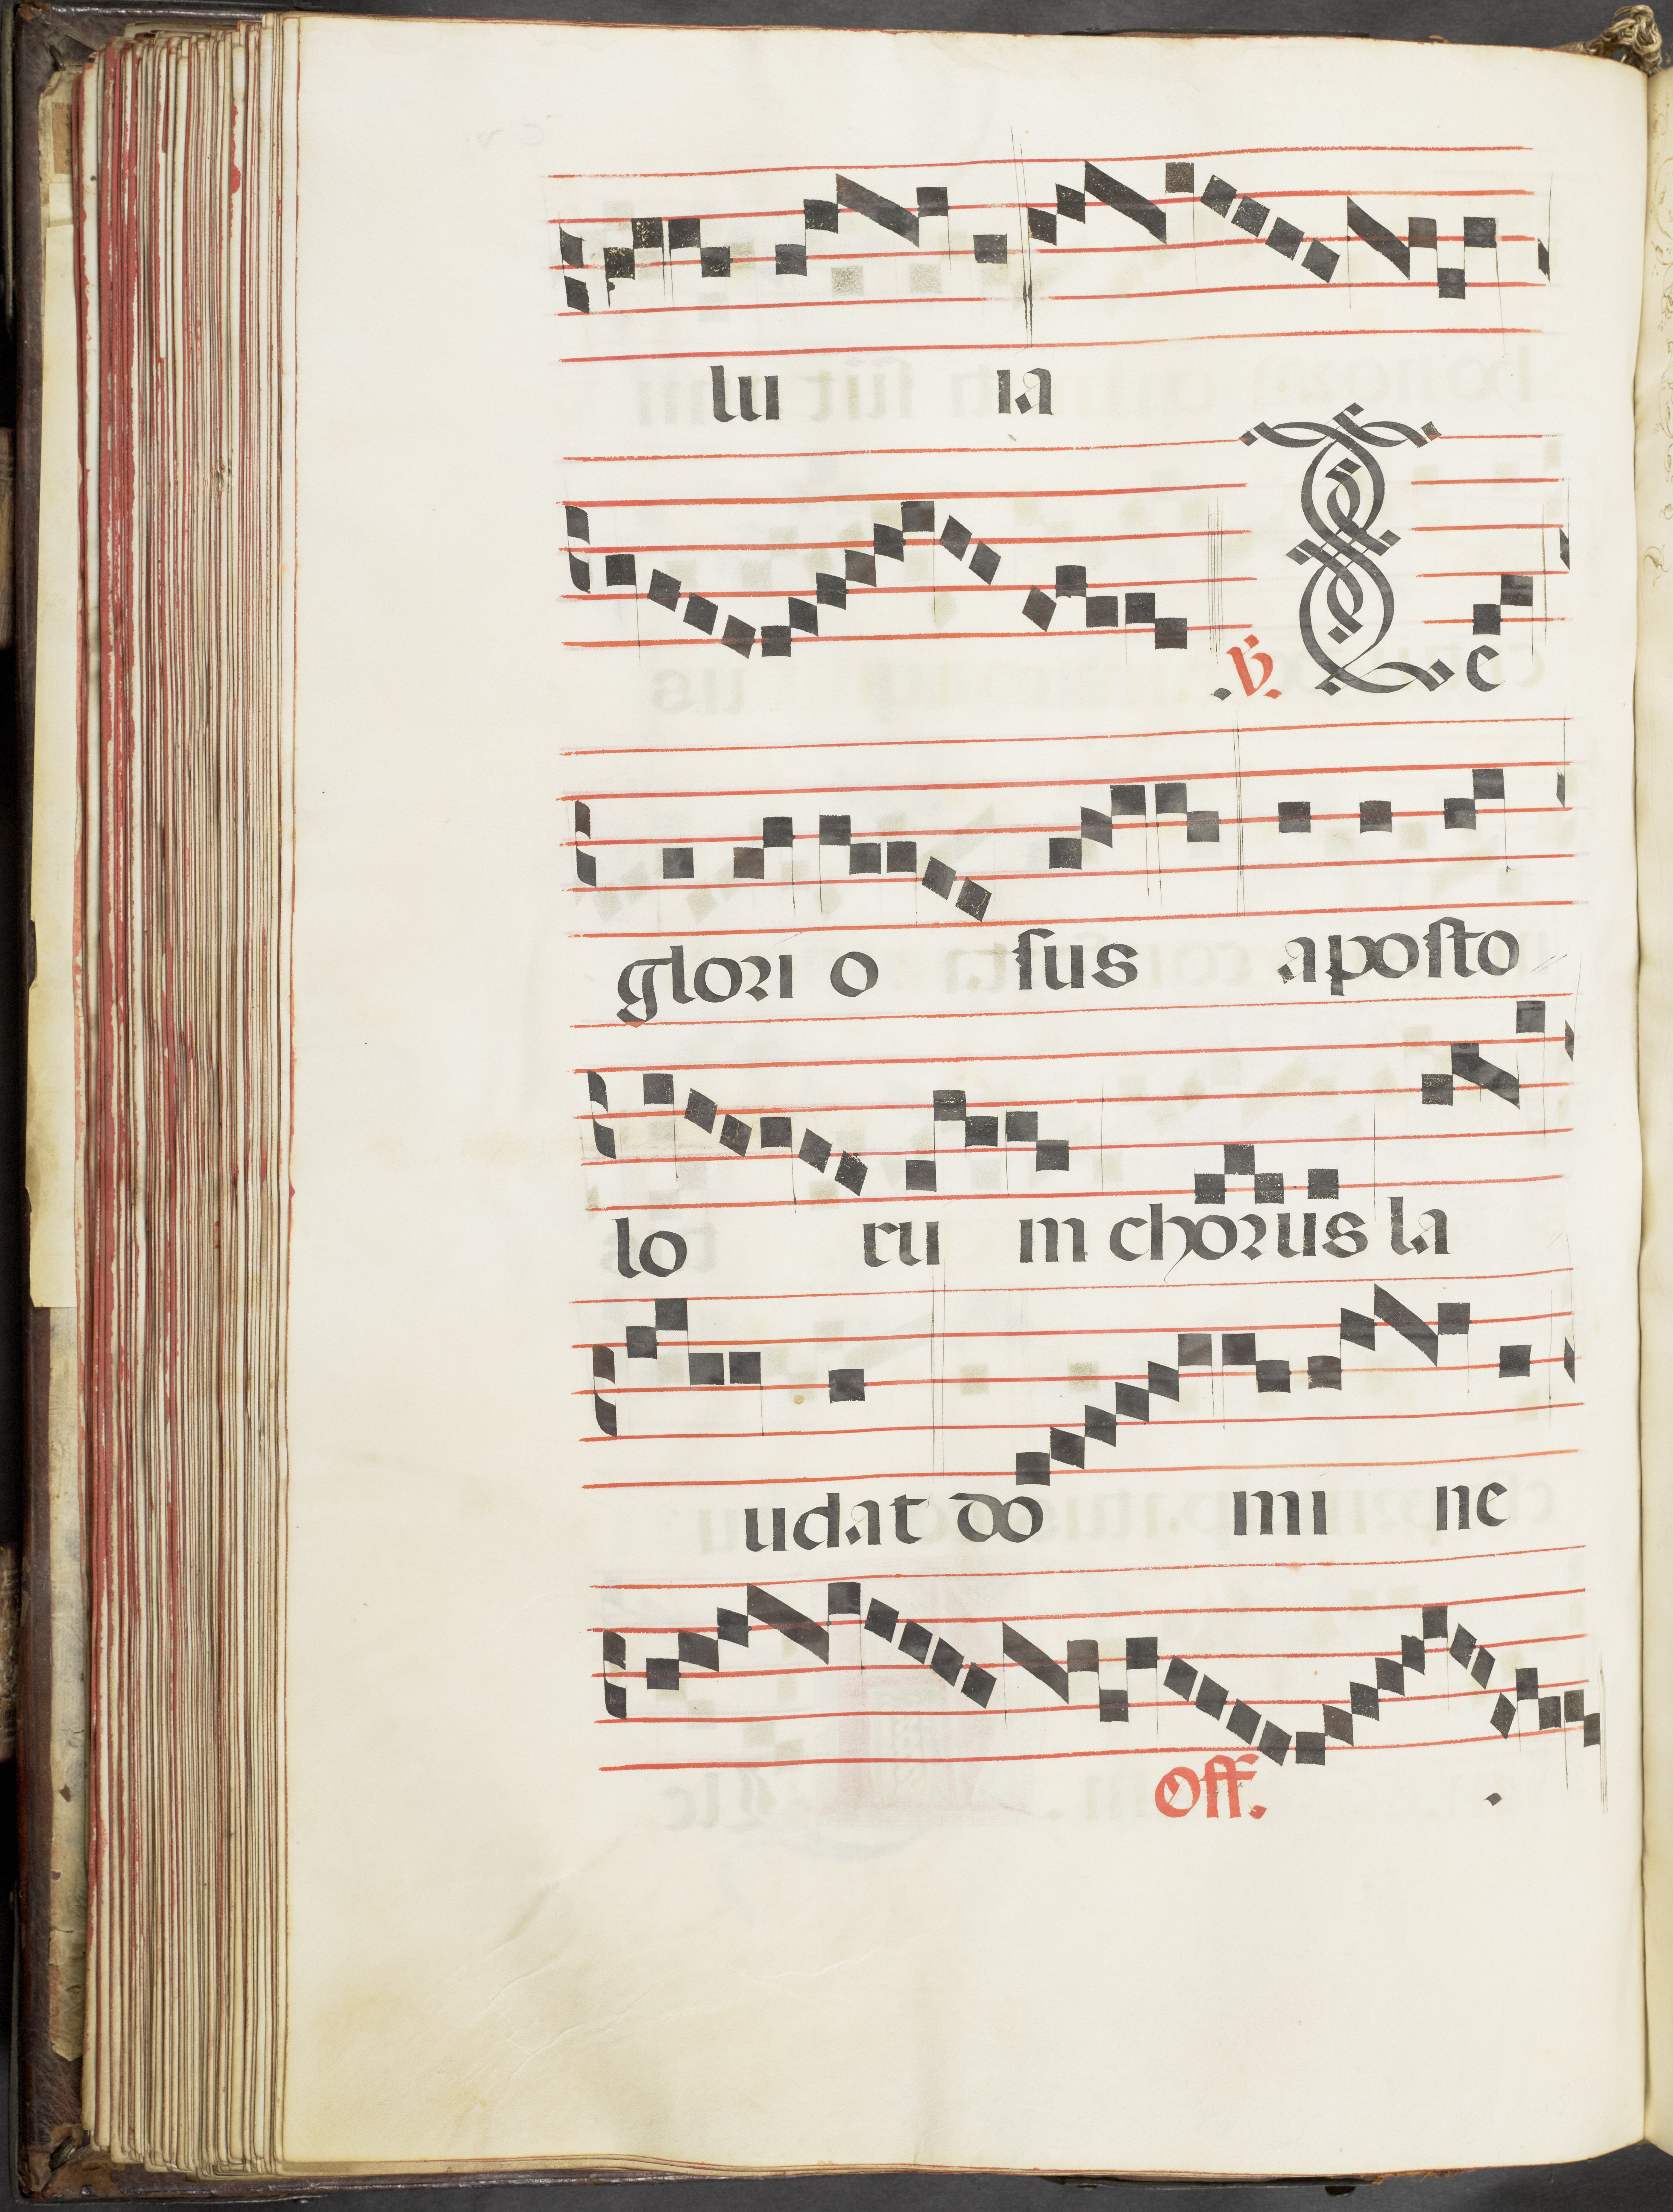 lu ia
.℣. Te
glori o sus aposto
lo ru m chorus la
udat do mi ne
Off. .